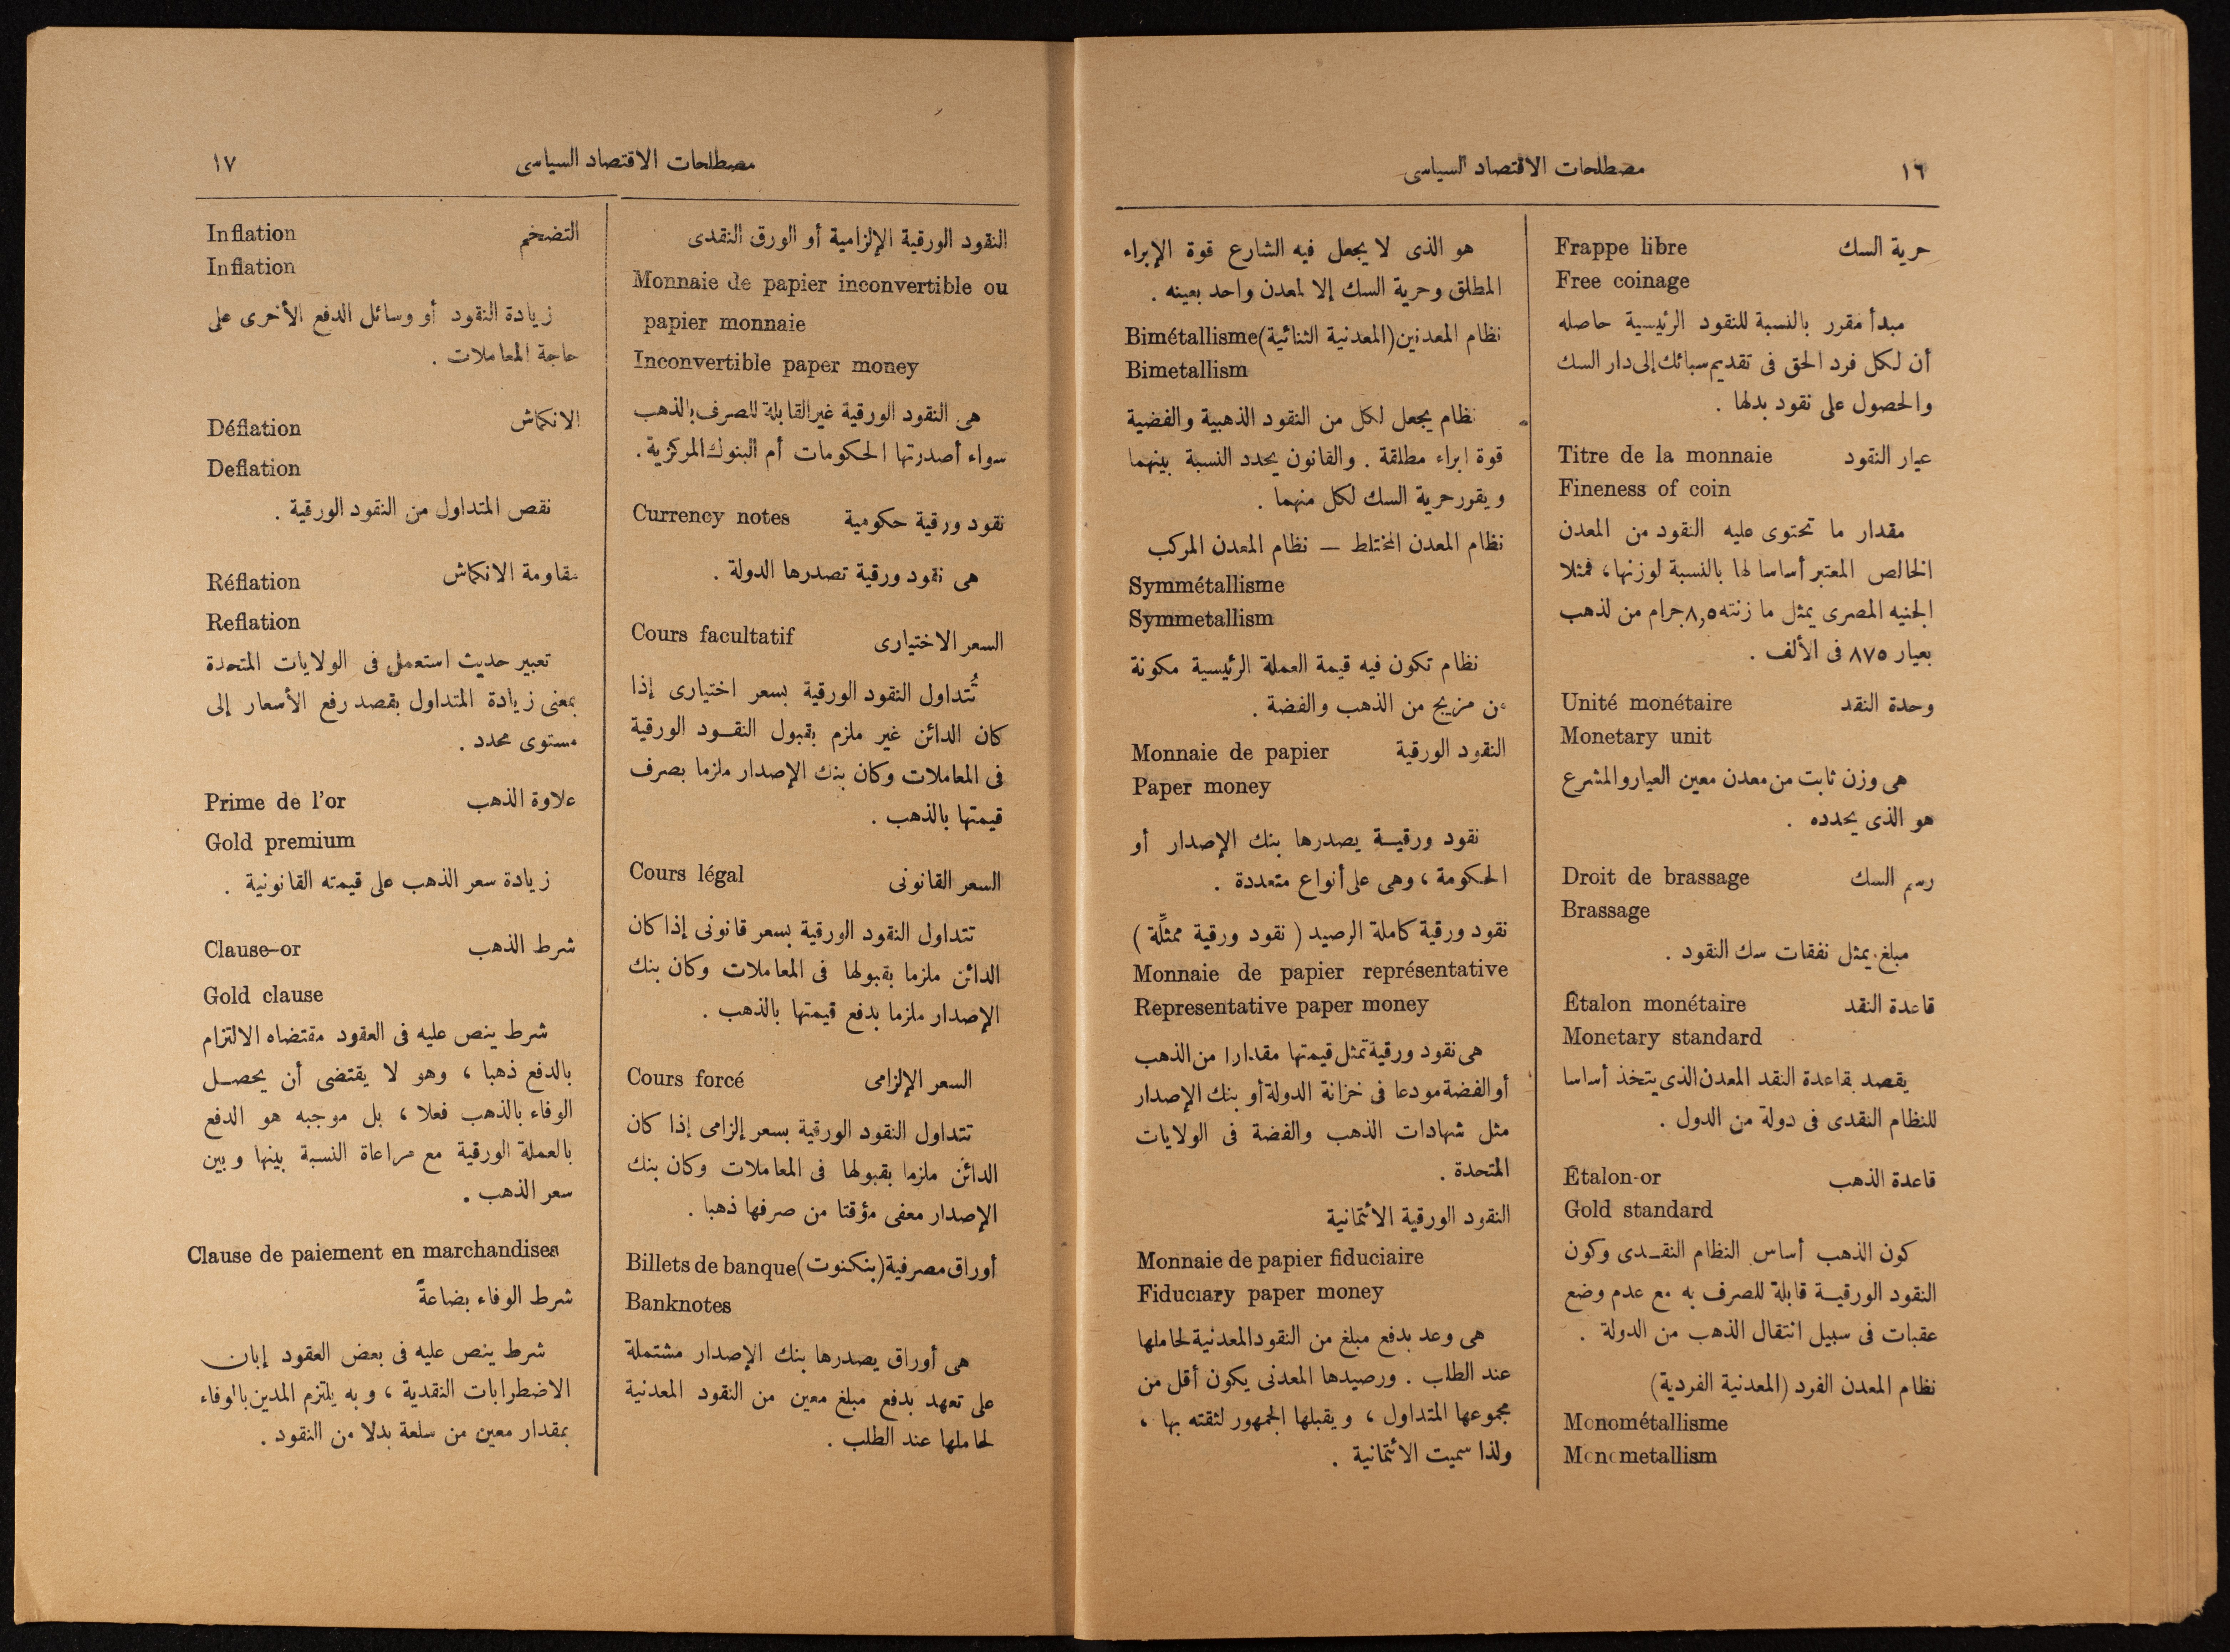 ١٦
مصطلحات الاقتصاد السياسى
حرية السك Frappe libre
Free coinage
مبدأ مقرر بالنسبة للنقود الرئيسية حاصله
أن لكل فرد الحق فى تقديم سبائك إلى دار السك
والحصول على نقود بدلها .
عيار النقود Titre de la monnaie
Fineness of coin
مقدار ما تحتوى عليه النقود من المعدن
الخالص المعتبر أساسا لها بالنسبة لوزنها ، فمثلا
الجنيه المصرى يمثل ما زنته ٨,٥ جرام من لذهب
بعيار ٨٧٥ فى الألف .
وحدة النقد Unité monétaire
Monetary unit
هى وزن ثابت من معدن معين العيار والمشرع
هو الذى يحدده .
رسم السك Droit de brassage
Brassage
مبلغ يمثل نفقات سك النقود .
قاعدة النقد Étalon monétaire
Monetary standard
يقصد بقاعدة النقد المعدن الذى يتخذ أساسا
للنظام النقدى فى دولة من الدول .
قاعدة الذهب Étalon-or
Gold standard
كون الذهب أساس النظام النقدى وكون
النقود الورقية قابلة للصرف به مع عدم وضع
عقبات فى سبيل انتقال الذهب من الدولة .
نظام المعدن الفرد (المعدنية الفردية)
Monométallisme
Monometallism
هو الذى لا يجعل فيه الشارع قوة الإبراء
المطلق وحرية السك إلا لمعدن واحد بعينه .
نظام المعدنين (المعدنية الثنائية) Bimétallisme
Bimetallism
نظام يجعل لكل من النقود الذهبية والفضية
قوة ابراء مطلقة . والقانون يحدد النسبة بينهما
ويقرر حرية السك لكل منهما .
نظام المعدن المختلط — نظام المعدن المركب
Symmétallisme
Symmetallism
نظام تكون فيه قيمة العملة الرئيسية مكونة
من مزيج من الذهب والفضة .
النقود الورقية Monnaie de papier
Paper money
نقود ورقية يصدرها بنك الإصدار أو
الحكومة ، وهى على أنواع متعددة .
نقود ورقية كاملة الرصيد ( نقود ورقية ممثِّلة )
Monnaie de papier représentative
Representative paper money
هى نقود ورقية تمثل قيمتها مقدارا من الذهب
أو الفضة مودعا فى خزانة الدولة أو بنك الإصدار
مثل شهادات الذهب والفضة فى الولايات
المتحدة .
النقود الورقية الأئتمانية
Monnaie de papier fiduciaire
Fiduciary paper money
هى وعد بدفع مبلغ من النقود المعدنية لحاملها
عند الطلب . ورصيدها المعدنى يكون أقل من
مجموعها المتداول ، ويقبلها الجمهور لثقته بها ،
ولذا سميت الأئتمانية .
مصطلحات الاقتصاد السياسى
١٧
النقود الورقية الإلزامية أو الورق النقدى
Monnaie de papier inconvertible ou
papier monnaie
Inconvertible paper money
هى النقود الورقية غير القابلة للصرف بالذهب
سواء أصدرتها الحكومات أم البنوك المركزية .
نقود ورقية حكومية Currency notes
هى نقود ورقية تصدرها الدولة .
السعر الاختيارى Cours facultatif
تُتداول النقود الورقية بسعر اختيارى إذا
كان الدائن غير ملزم بقبول النقود الورقية
فى المعاملات وكان بنك الإصدار ملزما بصرف
قيمتها بالذهب .
السعر القانونى Cours légal
تتداول النقود الورقية بسعر قانونى إذا كان
الدائن ملزما بقبولها فى المعاملات وكان بنك
الإصدار ملزما بدفع قيمتها بالذهب .
السعر الإلزامى Cours forcé
تتداول النقود الورقية بسعر إلزامى إذا كان
الدائن ملزما بقبولها فى المعاملات وكان بنك
الإصدار معفى مؤقتا من صرفها ذهبا .
أوراق مصرفية (بنكنوت) Billets de banque
Banknotes
هى أوراق يصدرها بنك الإصدار مشتملة
على تعهد بدفع مبلغ معين من النقود المعدنية
لحاملها عند الطلب .
التضخم Inflation
Inflation
زيادة النقود أو وسائل الدفع الأخرى على
حاجة المعاملات .
الانكماش Déflation
Deflation
نقص المتداول من النقود الورقية .
مقاومة الانكماش Réflation
Reflation
تعبير حديث استعمل فى الولايات المتحدة
بمعنى زيادة المتداول بقصد رفع الأسعار إلى
مستوى محدد .
علاوة الذهب Prime de l'or
Gold premium
زيادة سعر الذهب على قيمته القانونية .
شرط الذهب Clause-or
Gold clause
شرط ينص عليه فى العقود مقتضاه الالتزام
بالدفع ذهبا ، وهو لا يقتضى أن يحصل
الوفاء بالذهب فعلا ، بل موجبه هو الدفع
بالعملة الورقية مع مراعاة النسبة بينها وبين
سعر الذهب .
Clause de paiement en marchandises
شرط الوفاء بضاعةً
شرط ينص عليه فى بعض العقود إبان
الاضطرابات النقدية ، وبه يلتزم المدين بالوفاء
بمقدار معين من سلعة بدلا من النقود .